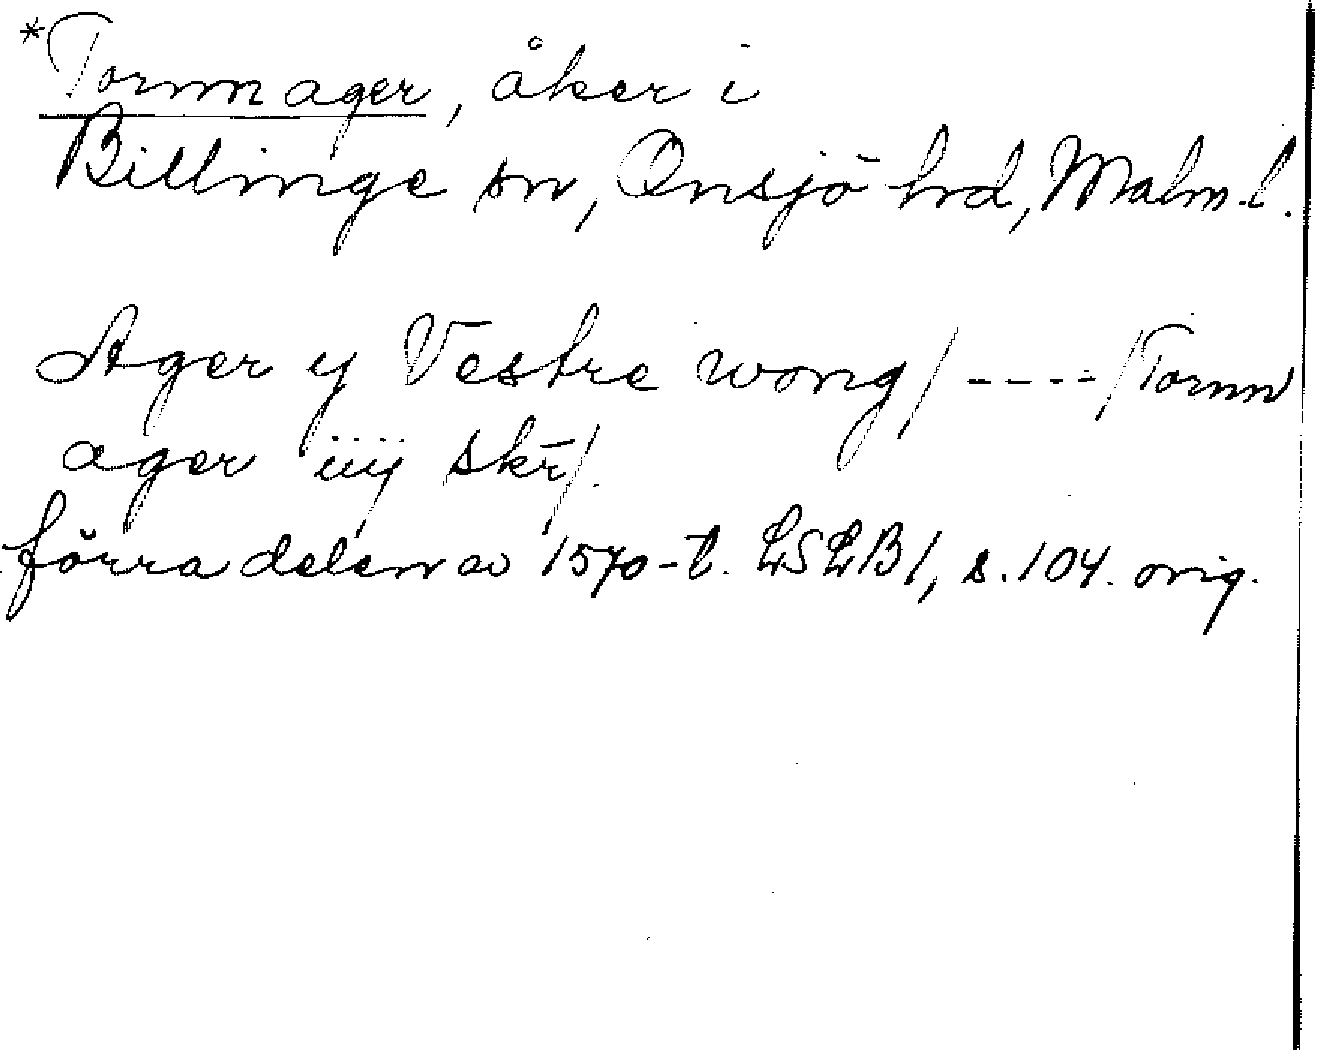 *Tornn ager, åker i
Billinge sn, Onsjö hrd, Malm. l.
Ager y Vestre wong/ ---- /Tornn
ager iiij skr̄/.
förra delen av 1570-t. LSLB1, s. 104. orig.